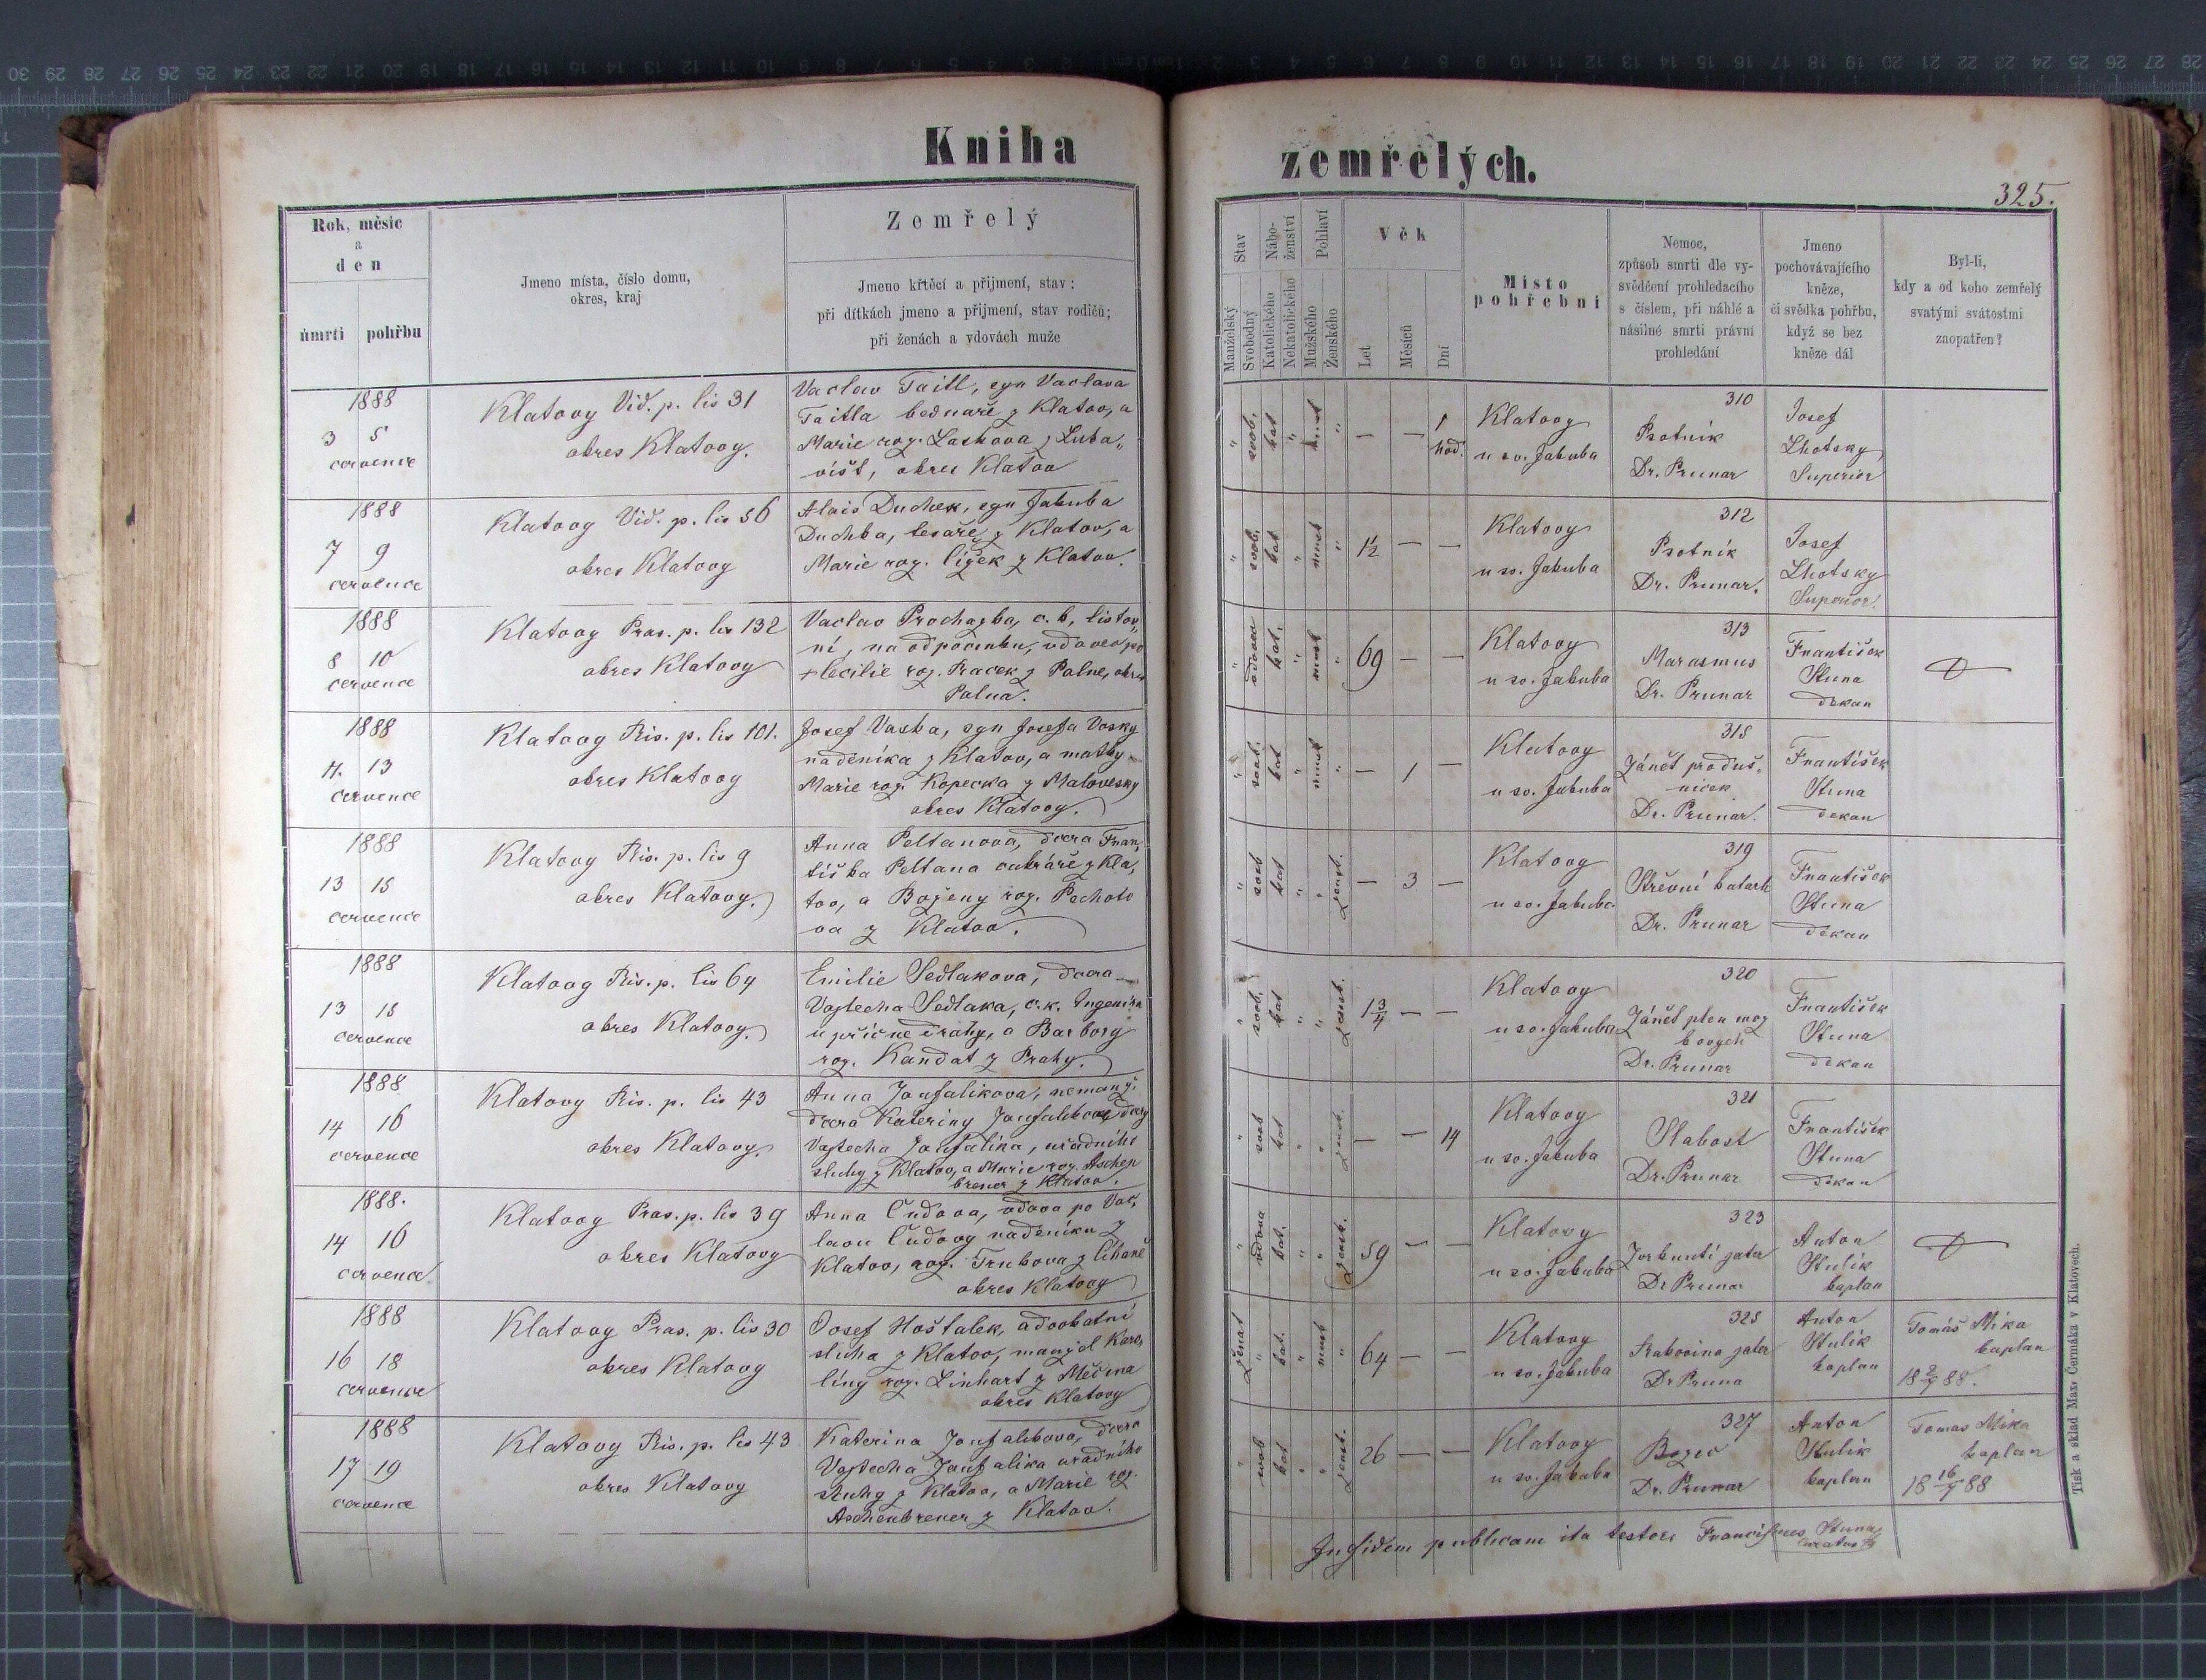 Kniha
zemřelých.
325.
Rok, měsíc
a
den
úmrtí pohřbu
Jmeno místa, číslo domu,
okres, kraj
Zemřelý
Jmeno křtěcí a přijmení, stav;
při dítkách jmeno a přijmení, stav rodičů;
při ženách a vdovách muže
Stav
Nábo-
ženství
Pohlaví
Manželský
Svobodný
Katolického
Nekatolického
Mužského
Ženského
Věk
Let
Měsíců
Dní
Místo
pohřební
Nemoc,
způsob smrti dle vy-
svědčení prohledacího
s číslem, při náhlé a
násilné smrti právní
prohledání
Jmeno
pochovávajícího
kněze,
či svědka pohřbu,
když se bez
kněze dál
Byl-li,
kdy a od koho zemřelý
svatými svátostmi
zaopatřen?
1888
3 5
července
Klatovy Vid. p. lis 31
okres Klatovy.
Vaclav Taitl, syn Vaclava
Taitla bednaře z Klatov, a
Marie roz. Laskova z Luba„
višt, okres Klatov
" svob. kat " "
— — 1
hod.
Klatovy
u sv. Jakuba
310
Psotnik
Dr. Prunar
Josef
Lhotsky
Superior
1888
7 9
července
Klatovy Vid. p. lis 56
okres Klatovy
Alois Duchek, syn Jakuba
Duchka, tesaře z Klatov, a
Marie roz. Cizek z Klatov.
" svob. kat " musk "
1½ — —
Klatovy
u sv. Jakuba
312
Psotnik
Dr. Prunar.
Josef
Lhotsky
Superior.
1888
8 10
července
Klatovy Pras. p. lis 132
okres Klatovy
Vaclav Prochazka, c. k. listov„
ni, na odpočinku, vdovec po
+ Cecilie roz. Pracek z Polne, okres
Polna.
" vdovec kat. " musk "
69 — —
Klatovy
u sv. Jakuba
313
Marasmus
Dr. Prunar
František
Stuna
děkan
1888
11. 13
července
Klatovy Ris. p. lis 101.
okres Klatovy
Josef Vaska, syn Josefa Vasky
nadenika z Klatov, a matky
Marie roz. Kopecka z Malovesky
okres Klatovy.
" svob. kat " musk "
— 1 —
Klatovy
u sv. Jakuba
318
Zánět produš„
nicek
Dr. Prunar.
František
Stuna
děkan
1888
13 15
července
Klatovy Ris. p. lis 9
okres Klatovy.
Anna Peltanova, dcera Fran„
tiška Peltana cukráře z Kla„
tov, a Boženy roz. Pechoto
va z Klatov.
" svob kat " " žensk.
— 3 —
Klatovy
u sv. Jakuba
319
Střevní katarh
Dr. Prunar
František
Stuna
děkan
1888
13 15
července
Klatovy Ris. p. lis 64
okres Klatovy.
Emilie Sedlakova, dcera
Vojtecha Sedlaka, c. k. Ingenira
u příčne drahy, a Barbory
roz. Kandat z Prahy.
" svob. kat " " žensk.
1¾ — —
Klatovy
u sv. Jakuba
320
Zánět plen moz
kovych
Dr. Prunar
František
Stuna
děkan
1888
14 16
července
Klatovy Ris. p. lis 43
okres Klatovy.
Anna Janfalikova, nemanž.
dcera Kateriny Janfalikove, dcery
Vojtecha Janfalika, uřadniho
sluhy z Klatov, a Marie roz. Aschen
brener z Klatov.
" svob kat " " žensk.
— — 14
Klatovy
u sv. Jakuba
321
Slabost
Dr. Prunar
František
Stuna
děkan
1888.
14 16
července
Klatovy Pras. p. lis 39
okres Klatovy
Anna Cudova, vdova po Vac„
lavu Cudovy nadeniku z
Klatov, roz. Trubova z Čihaně
okres Klatovy
" vdova kat. " " žensk.
59 — —
Klatovy
u sv. Jakuba
323
Zvrknutí jater
Dr Prunar
Anton
Stulik
kaplan
1888
16 18
července
Klatovy Pras. p. lis 30
okres Klatovy
Josef Hoštalek, advokatni
sluha z Klatov, manžel Karo„
liny roz. Linhart z Měčina
okres Klatovy
ženat " kat. " musk "
64 — —
Klatovy
u sv. Jakuba
325
Rakovina jater
Dr Pruna
Anton
Stulik
kaplan
Tomáš Mika
kaplan
18 2/7 88.
1888
17 19
července
Klatovy Ris. p. lis 43
okres Klatovy
Katerina Janfalikova, dcera
Vojtecha Janfalika uřadniho
sluhy z Klatov, a Marie roz.
Aschenbrener z Klatov.
" svob kat " " žensk.
26 — —
Klatovy
u sv. Jakuba
327
Dr. Prunar
Anton
Stulik
kaplan
Tomas Mika
kaplan
18 16/7 88
In fidem publicam ita testor. Franciscus Stuna,
curatus
Tisk a sklad Max. Čermáka v Klatovech.